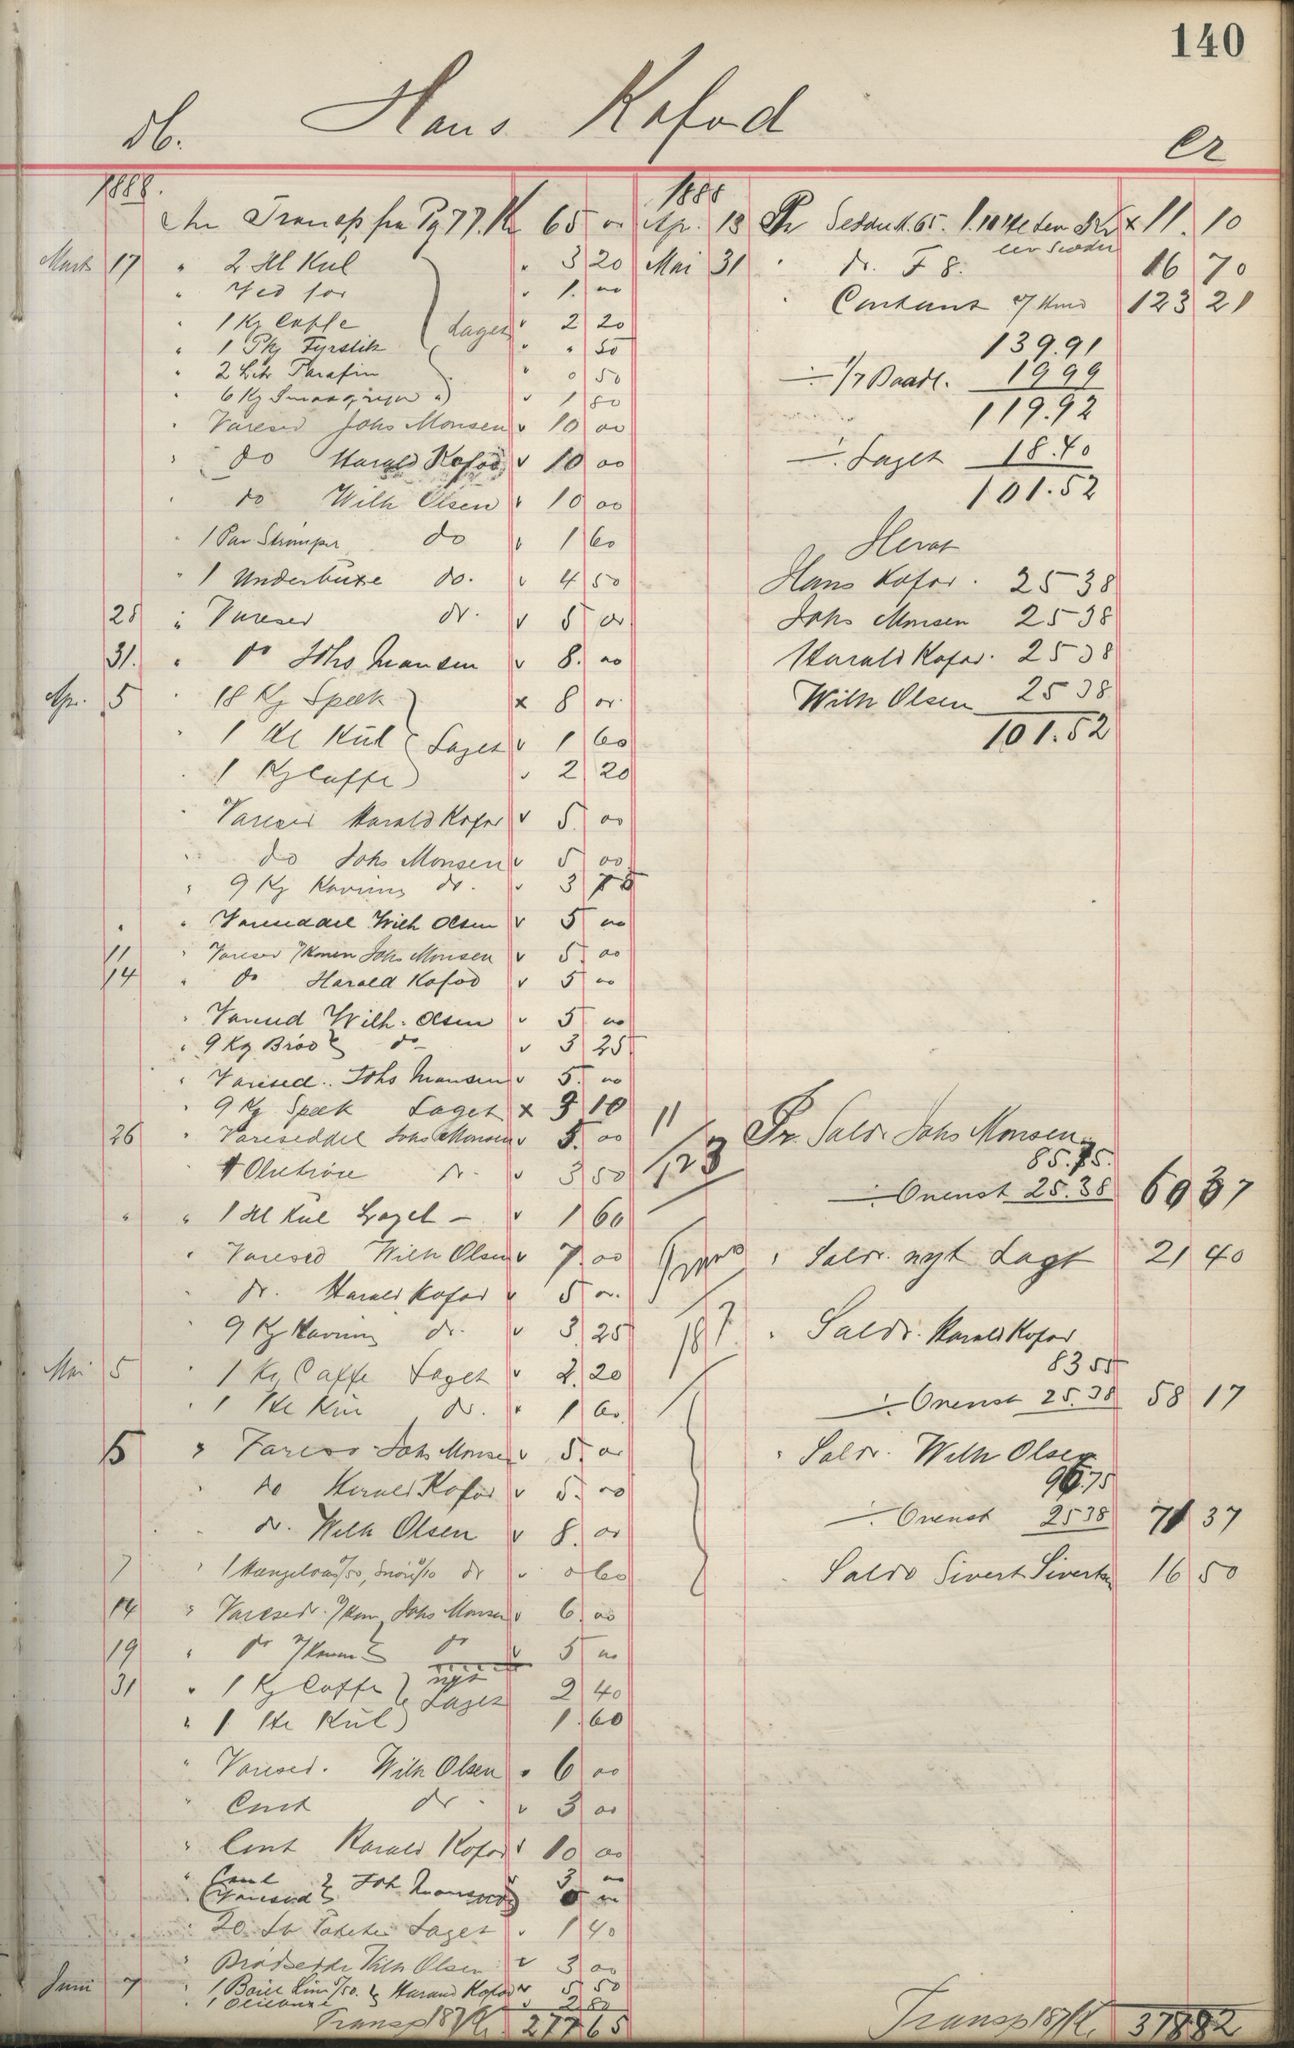 140
Hans Kofod
Db.
Cr
1888.
An Transp. fra Pg 77. Kr 65 00
Marts 17 " 2 Hl Kul " 3 20
" Ved for v 1. 00
" 1 Kg Caffe Laget v 2 20
" 1 Pk Fyrstik " " 50
" 2 Litr Parafin " 0 50
" 6 Kg v 1 80
" Varesed Johs Monsen v 10 00
" do Harald Kofod v 10 00
" do Wilh Olsen v 10 00
" 1 Par Strømper do v 1 60
" 1 Underbuxe do. v 4 50
28 " Varesed do. v 5 00
31. " do Johs Monsen v 8. 00
Apr. 5 " 18 Kg Spæk x 8 00
" 1 Hl Kul Laget v 1 60
" 1 Kg Caffe v 2 20
" Varesed Harald Kofod v 5 00
" do Johs Monsen v 5 00
" 9 Kg Kavring do. v 3 75
" " Vareseddel Wilh Olsen v 5 00
11 " Varesed /Konen Johs Monsen v 5. 00
14 " do Harald Kofod v 5 00
" Varesed Wilh. Olsen v 5 00
" 9 Kg Brød do v 3 25
" Varesed.. Johs Monsen v 5. 00
" 9 Kg Spæk Laget x 9 10
26 " Vareseddel Johs Monsen v 5. 00
" 1 Oliebuxe do. v 3 50
" " 1 Hl Kul Laget - v 1 60
" Varesed Wilh Olsen v 7. 00
" do. Harald Kofod v 5 00
" 9 Kg Kavring do. v 3. 25
Mai 5 " 1 Kg Caffe Laget v 2. 20
" 1 Hl Kul do. " 1 60
15 " Varesed Johs Monsen v 5. 00
" do Harald Kofod v 5. 00
" do. Wilh Olsen v 8. 00
7 " 1 /50, Snøre /10 do v 0 60
14 " Varesedr. /Konen Johs Monsen v 6. 00
19 " do /Konen do v 5 00
31 " 1 Kg Caffe nyt Laget 2 40
" 1 Hl Kul 1. 60
" Varesed. Wilh Olsen " 6 00
" Cont do - v 3 00
" Cont Harald Kofod v 10 00
" Cont Joh Monsen v 3 00
(Varesed)
" 20 Laget v 1 40
" Brødseddel Wilh Olsen v 3 00
Juni 7 " 1 /50. Harald Kofod v 5 50
" 1 Oliebuxe v 2 80
Transp 187 Kr. 277 65
1888
Apr. 13 Pr Seddel N. 65. x 11. 10
Mai 31 " do. F 8. 16 70
" Contant 123 21
139.91
÷ 1/7 Baadl. 19 99
119.92
÷ Laget 18.40
101.52
Heraf
Hans Kofod. 25 38
Johs Monsen 25 38
Harald Kofod. 25 38
Wilh Olsen 25 38
101.52
11
/123
Pr. Saldo Johs Monsen
85.75.
÷ Ovenst 25.38 60 37
" Saldo. nyt Lagt 21 40
187
" Saldo. Harald Kofod
83 55
÷ Ovenst 25.38 58 17
" Saldo. Wilh Olsen
96.75
÷ Ovenst 25 38 71 37
" Saldo Sivert Sivertsen 16 50
Transp 187 Kr. 378 82